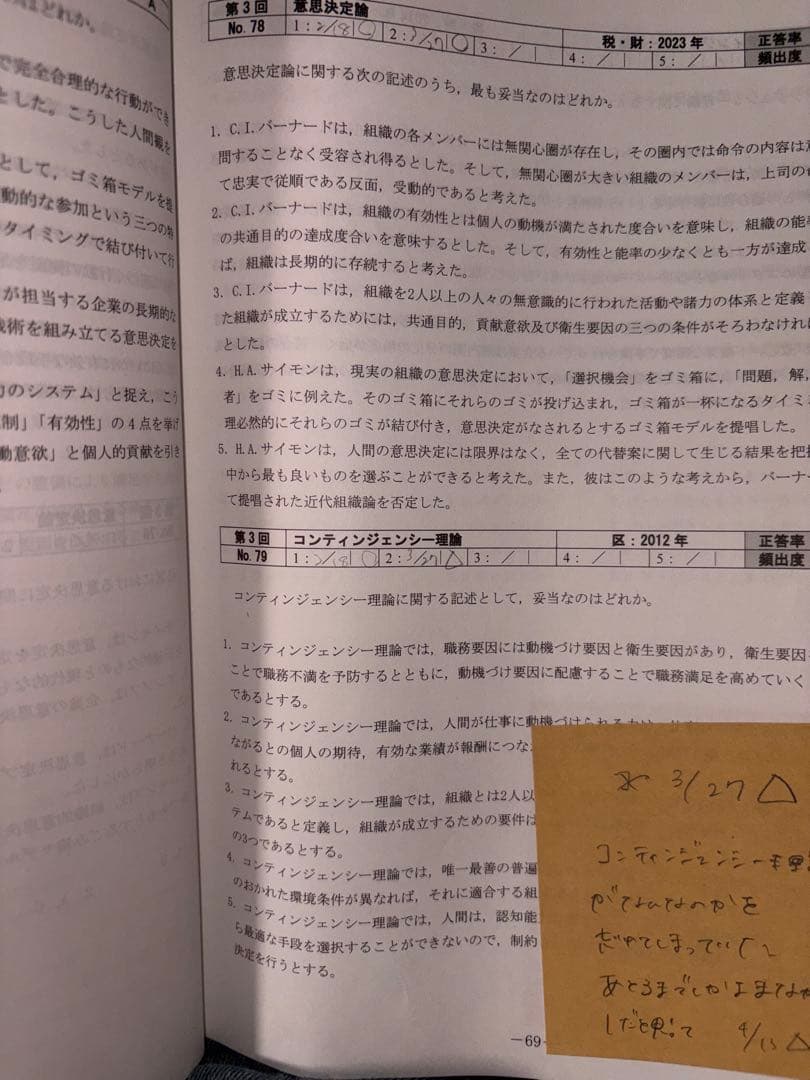 はどれか。
A
で完全合理的な行動ができ
とした。こうした人間観を
として，ゴミ箱モデルを提
動的な参加という三つの特
タイミングで結び付いて行
が担当する企業の長期的な
戦術を組み立てる意思決定を
力のシステム」と捉え，こう
制」「有効性」の4点を挙げ
動意欲」と個人的貢献を引き
第3回 意思決定論
No. 78 1：2/18 ○ 2：3/27 ○ 3：／ 4：／ 5：／ 税・財：2023年 正答率 頻出度
意思決定論に関する次の記述のうち，最も妥当なのはどれか。
1. C.I.バーナードは，組織の各メンバーには無関心圏が存在し，その圏内では命令の内容は
問することなく受容され得るとした。そして，無関心圏が大きい組織のメンバーは，上司の
て忠実で従順である反面，受動的であると考えた。
2. C.I.バーナードは，組織の有効性とは個人の動機が満たされた度合いを意味し，組織の能率
の共通目的の達成度合いを意味するとした。そして，有効性と能率の少なくとも一方が達成
ば，組織は長期的に存続すると考えた。
3. C.I.バーナードは，組織を2人以上の人々の無意識的に行われた活動や諸力の体系と定義
た組織が成立するためには，共通目的，貢献意欲及び衛生要因の三つの条件がそろわなければ
とした。
4. H.A.サイモンは，現実の組織の意思決定において，「選択機会」をゴミ箱に，「問題，解，
者」をゴミに例えた。そのゴミ箱にそれらのゴミが投げ込まれ，ゴミ箱が一杯になるタイミ
理必然的にそれらのゴミが結び付き，意思決定がなされるとするゴミ箱モデルを提唱した。
5. H.A.サイモンは，人間の意思決定には限界はなく，全ての代替案に関して生じる結果を把握
中から最も良いものを選ぶことができると考えた。また，彼はこのような考えから，バーナー
て提唱された近代組織論を否定した。
第3回 コンティンジェンシー理論 区：2012年 正答率
No. 79 1：2/18 ○ 2：3/27 △ 3：／ 4：／ 5：／ 頻出度
コンティンジェンシー理論に関する記述として，妥当なのはどれか。
1. コンティンジェンシー理論では，職務要因には動機づけ要因と衛生要因があり，衛生要因
ことで職務不満を予防するとともに，動機づけ要因に配慮することで職務満足を高めていく
であるとする。
2. コンティンジェンシー理論では，人間が仕事に動機づけられる
ながるとの個人の期待，有効な業績が報酬につな
れるとする。
3. コンティンジェンシー理論では，組織とは2人以
テムであると定義し，組織が成立するための要件は
の3つであるとする。
4. コンティンジェンシー理論では，唯一最善の普遍
のおかれた環境条件が異なれば，それに適合する組
5. コンティンジェンシー理論では，人間は，認知能
ら最適な手段を選択することができないので，制約
決定を行うとする。
3/27 △
コンティンジェンシー理
がなんなのかを
しまってい
4/13 △
－69－